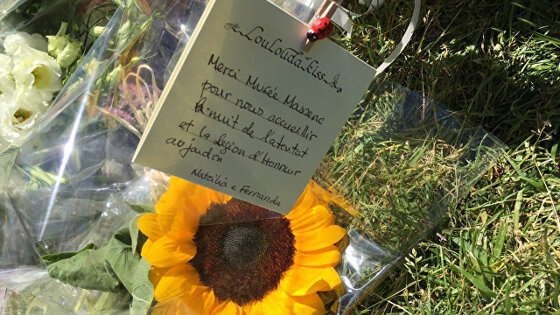 LouLoudakiss
Merci Musée Massena
pour nous accueillir
la nuit de l'atentat
et la legion d'Honneur
au jardin
Natália e Fernanda